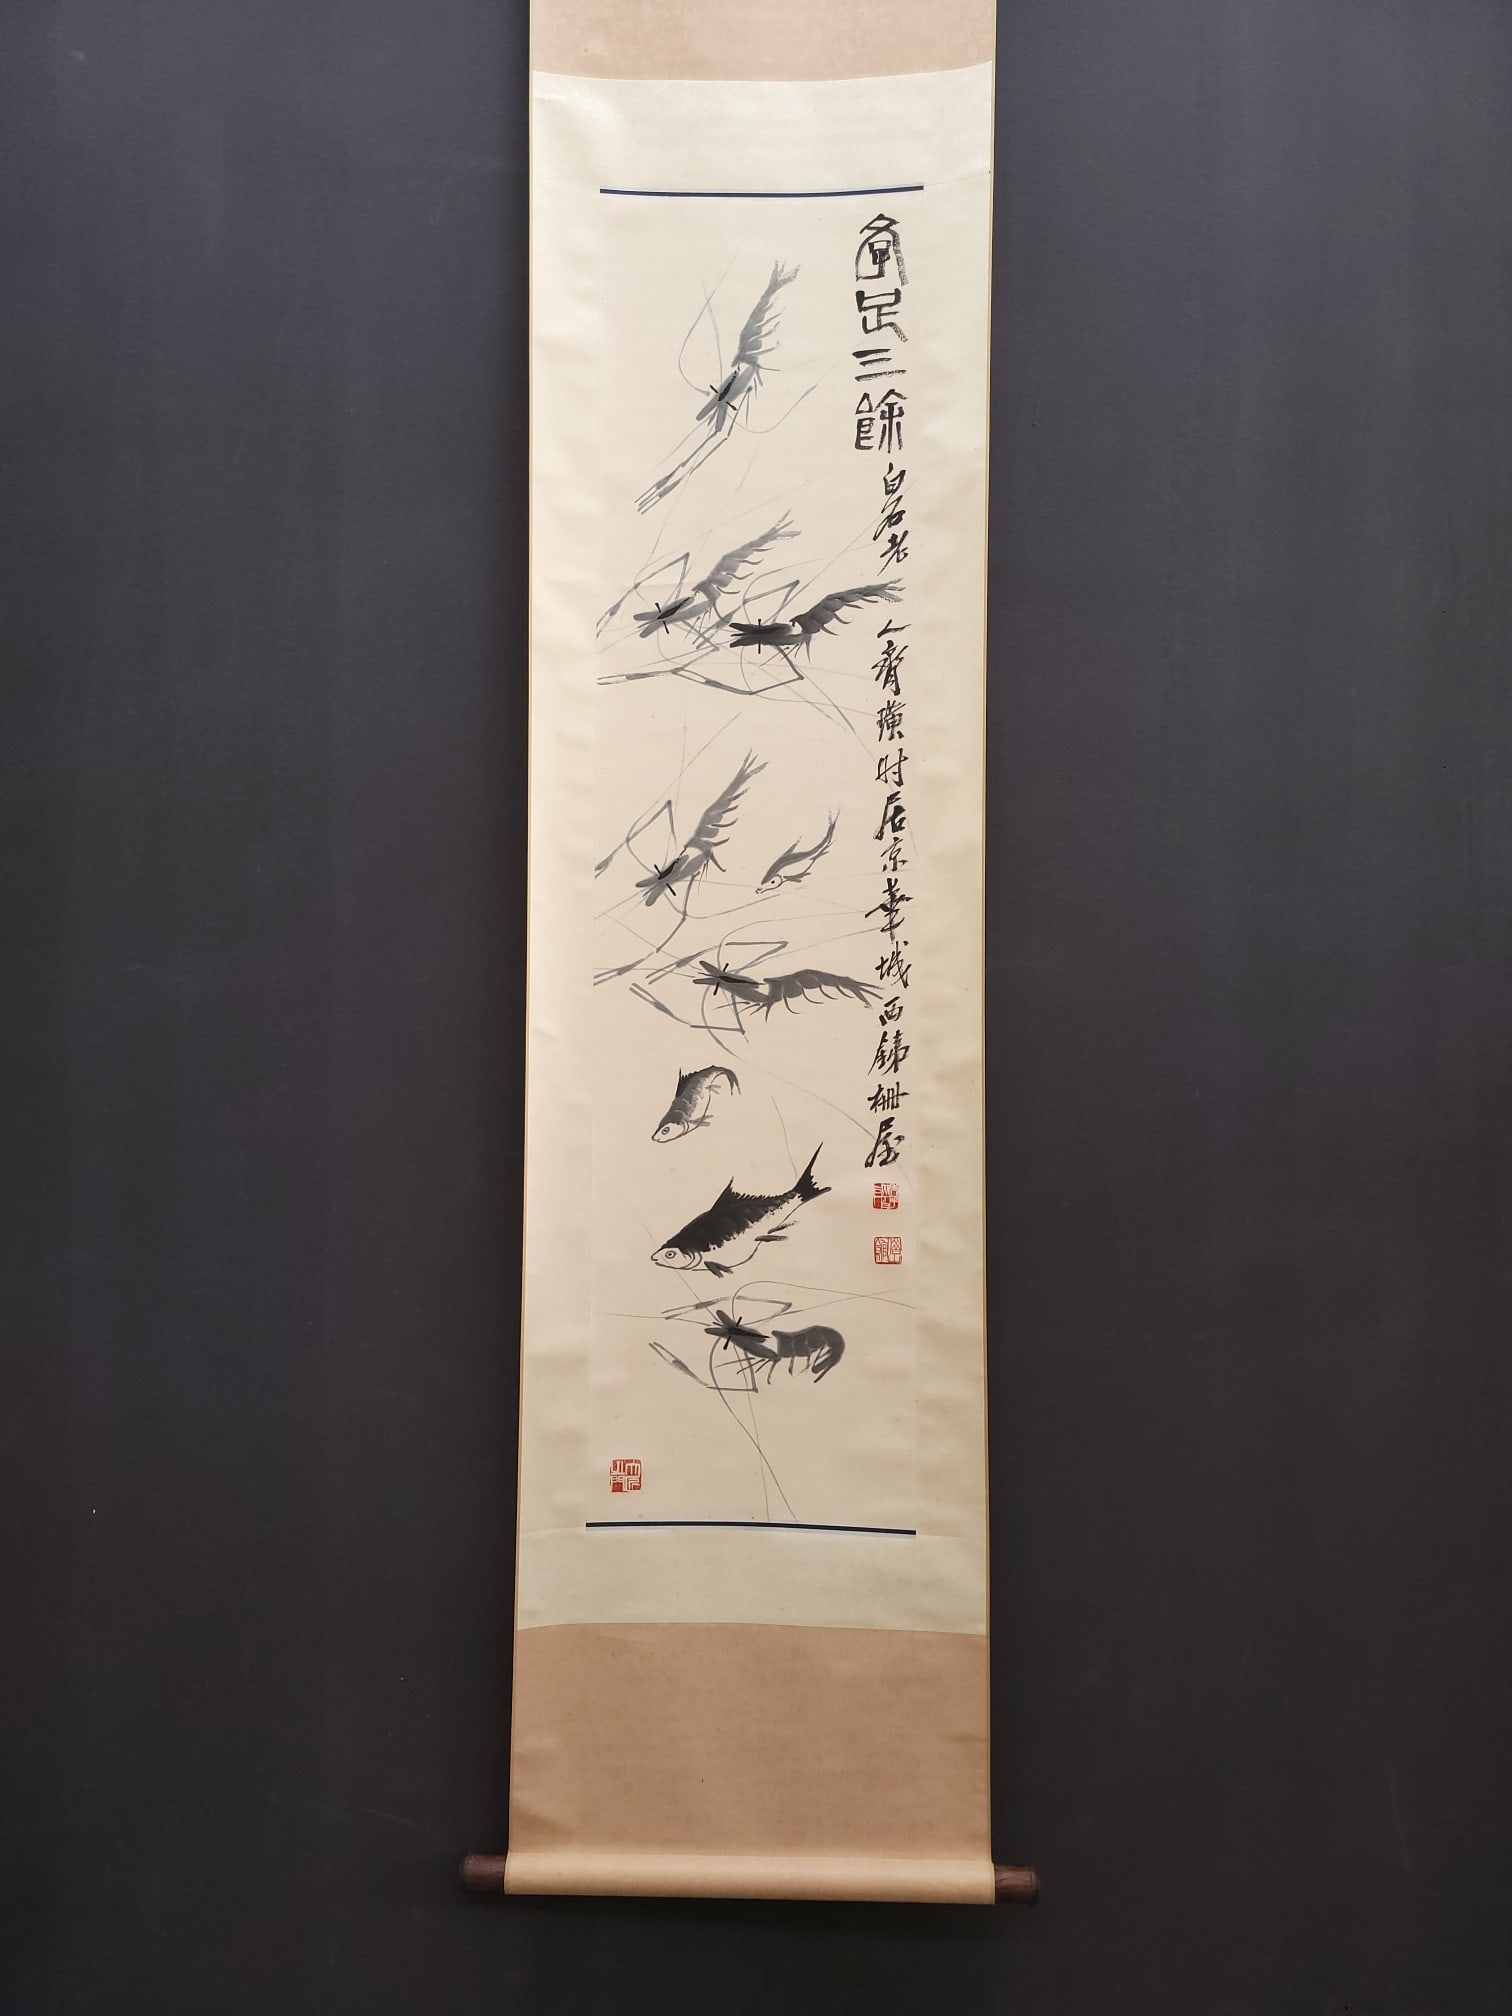 年足三餘
白石老人齊璜时居京華城西鐵柵屋